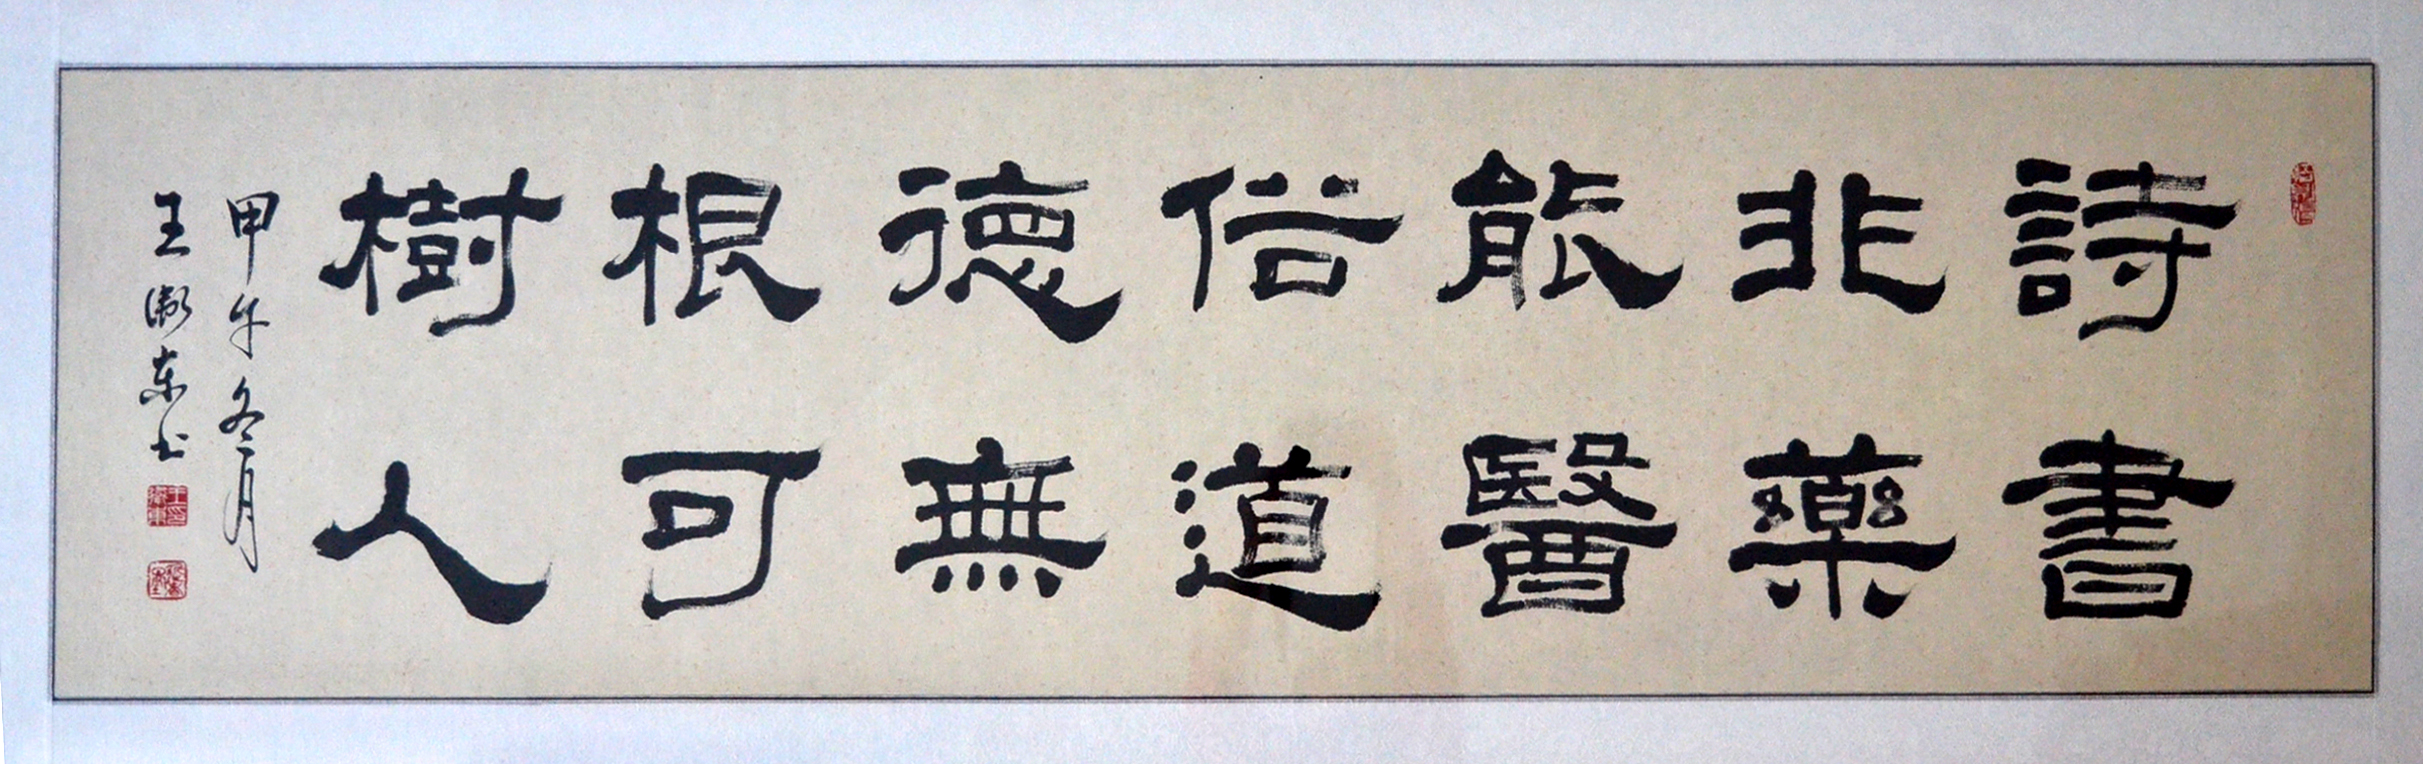 詩書
非藥
能醫
俗道
德無
根可
樹人
甲午冬月
王衛东书